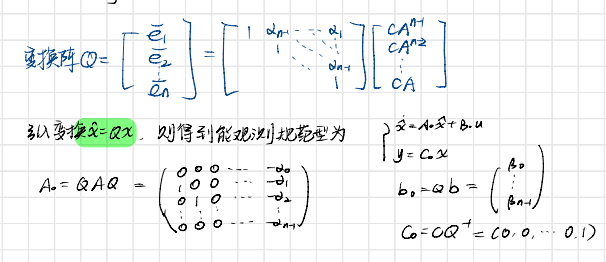 变换阵 Q = [ e̅₁ e̅₂ ⋮ e̅n ] = [ 1 αn-1 ⋯ α1 1 ⋱ αn-1 1 ] [ CAⁿ⁻¹ CAⁿ⁻² ⋮ CA ]
引入变换 x̂=Qx, 则得到能观测规范型为
{ ẋ̂ = A₀x̂ + B₀u
y = C₀x
A₀ = QAQ = ( 0 0 0 ⋯ -α0
1 0 0 ⋯ -α1
0 1 0 ⋯ -α2
⋮ ⋮ ⋮ ⋮
0 0 0 ⋯ -αn-1 )
b₀ = Qb = ( β0 ⋮ βn-1 )
C₀ = CQ⁻¹ = (0, 0, ⋯ 0, 1)